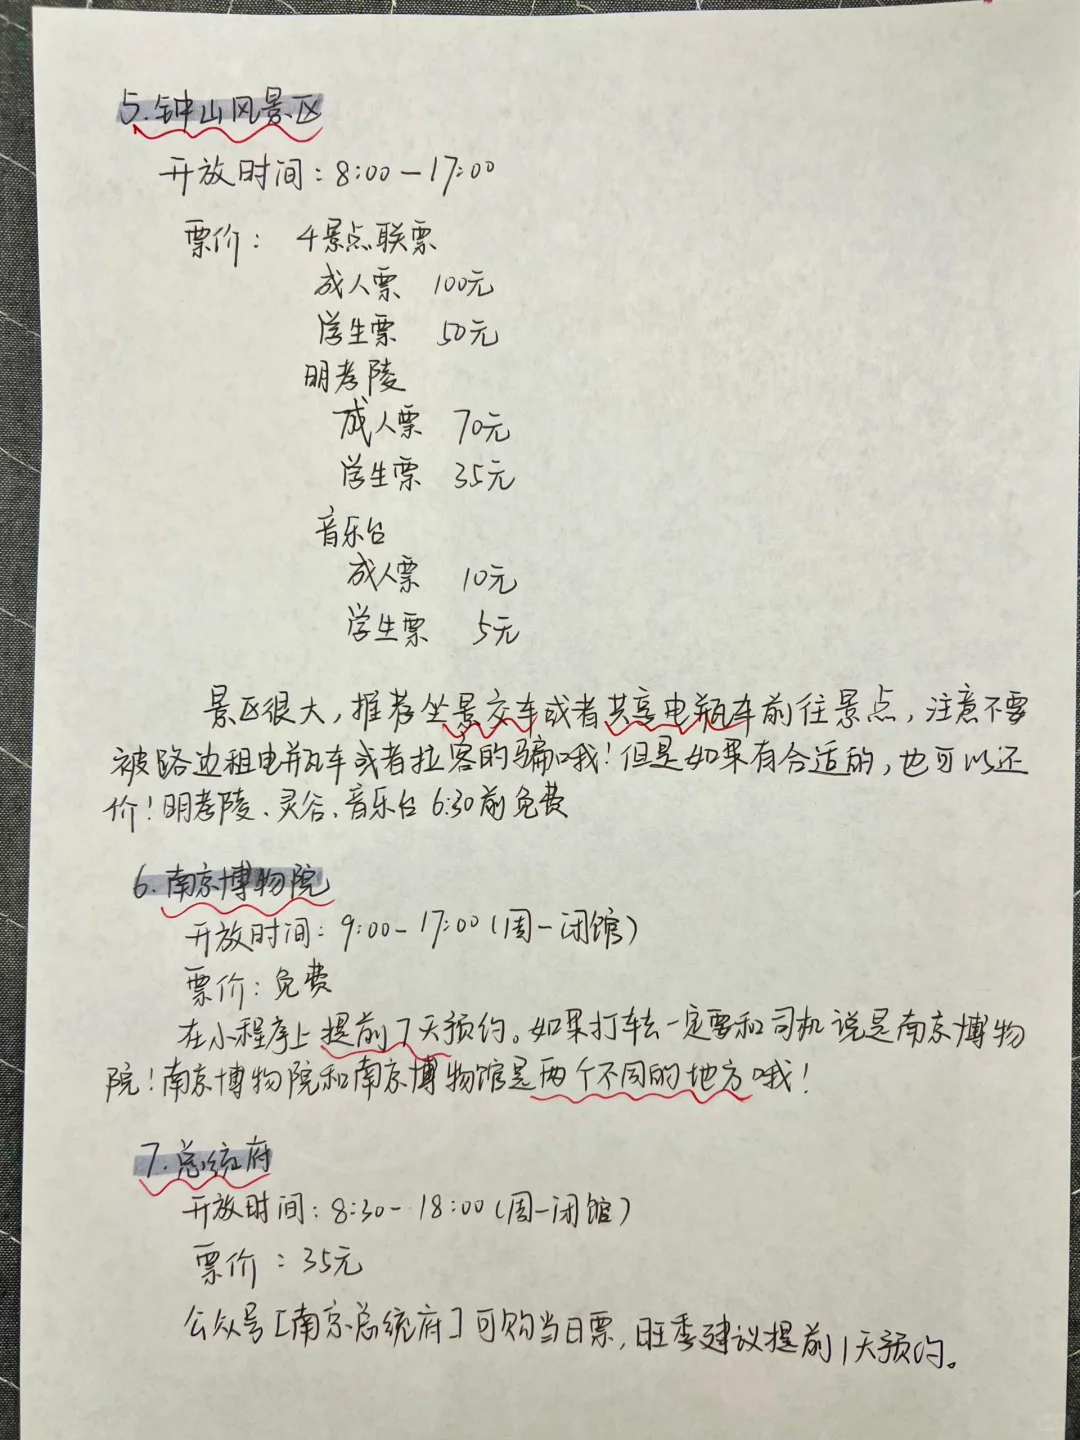 5.钟山风景区
开放时间：8:00—17:00
票价： 4景点联票
成人票 100元
学生票 50元
明孝陵
成人票 70元
学生票 35元
音乐台
成人票 10元
学生票 5元
景区很大，推荐坐景交车或者共享电瓶车前往景点，注意不要
被路边租电瓶车或者拉客的骗哦！但是如果有合适的，也可以还
价！明孝陵、灵谷、音乐台6:30前免费
6.南京博物院
开放时间：9:00-17:00(周一闭馆)
票价：免费
在小程序上提前7天预约。如果打车去一定要和司机说是南京博物
院！南京博物院和南京博物馆是两个不同的地方哦！
7.总统府
开放时间：8:30-18:00(周一闭馆)
票价：35元
公众号[南京总统府]可购当日票，旺季建议提前1天预约。